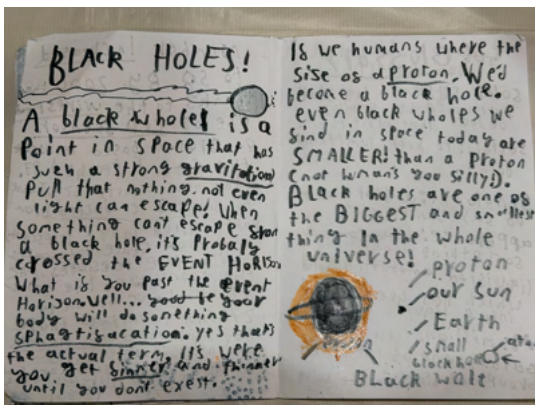 BLACK HOLES!
A black wholes is a
Point in space that has
such a strong gravitation
Pull that nothing. not even
light can escape! When
something cant escape from
a black hole, it's Probaly
crossed the EVENT HORISON
What is you past the event
Horison. Well... your
body will do something
sphagtisacation. yes that's
the actual term. It's were
you get sinner and thinner
until you don't exest.
Is we humans where the
size os a proton. We'd
become a black hole.
even black wholes we
sind in space today are
SMALLER! than a proton
(not human's you silly!).
BLACK holes are one os
the BIGGEST and smallest
thing In the whole
universe!
proton
our sun
Earth
small
black hole
BLack